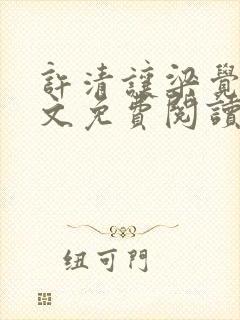 許清謹梁覺
文免費閱讀
纽可門